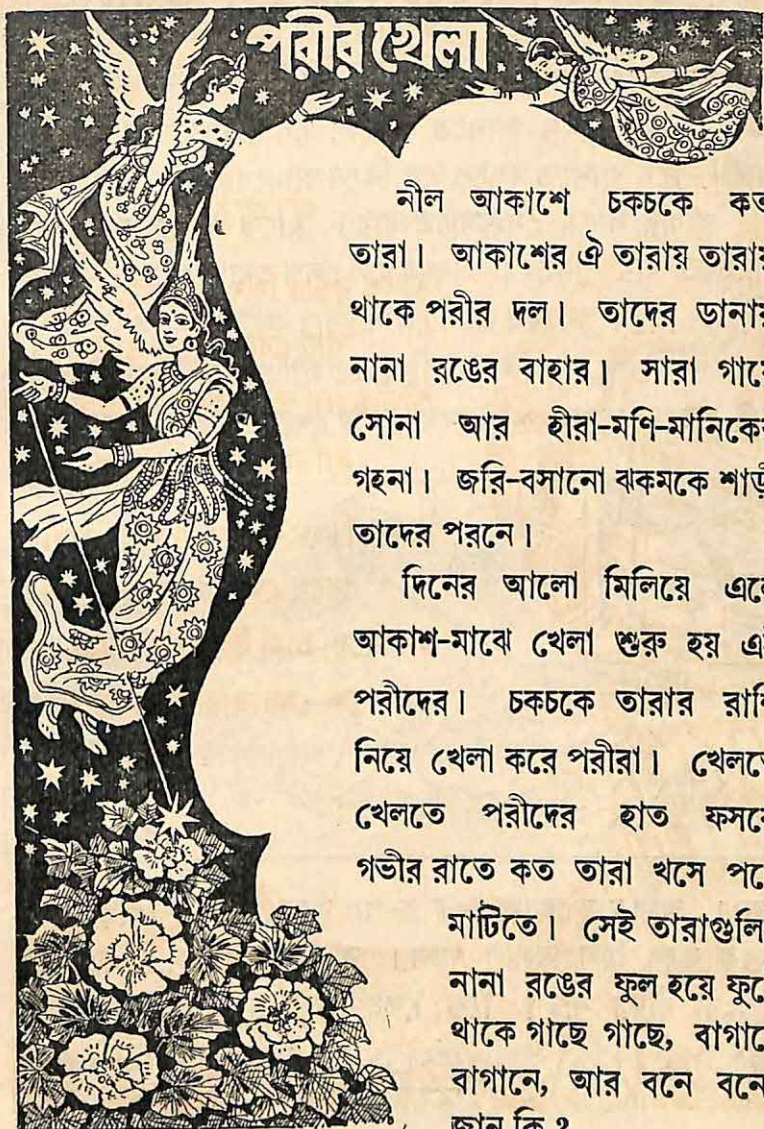 পরীর খেলা
নীল আকাশে চকচকে কত
তারা। আকাশের ঐ তারায় তারায়
থাকে পরীর দল। তাদের ডানায়
নানা রঙের বাহার। সারা গায়ে
সোনা আর হীরা-মণি-মানিকের
গহনা। জরি-বসানো ঝকমকে শাড়ী
তাদের পরনে।
দিনের আলো মিলিয়ে এলে
আকাশ-মাঝে খেলা শুরু হয় এই
পরীদের। চকচকে তারার রাশি
নিয়ে খেলা করে পরীরা। খেলতে
খেলতে পরীদের হাত ফসকে
গভীর রাতে কত তারা খসে পড়ে
মাটিতে। সেই তারাগুলি
নানা রঙের ফুল হয়ে ফুটে
থাকে গাছে গাছে, বাগানে
বাগানে, আর বনে বনে
জান কি?